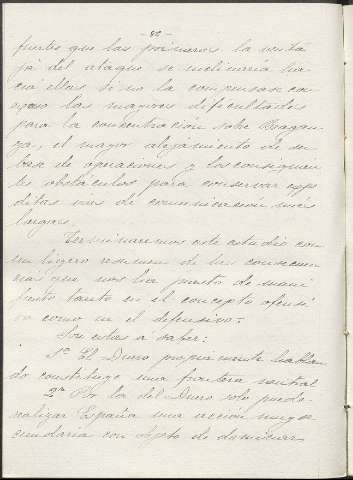 -82-
fuertes que las primeras la venta
ja del ataque se inclinaría ha
cia ellas si no la compensase con
las mayores dificultades
para la concentración sobre Bragan
za, el mayor alejamiento de su
base de operaciones y los consiguien
tes obstáculos para conservar expe
ditas vías de comunicación más
largas.
Terminaremos este estudio con
un ligero resumen de las consecuen
cias que nos ha puesto de mani
fiesto tanto en el concepto ofensi
vo como en el defensivo:
Son estas a saber:
1ª El Duero propiamente hablan
do constituye una frontera neutral
2ª Por la del Duero solo puede
realizar España una acción muy se
cundaria con objeto de dominar